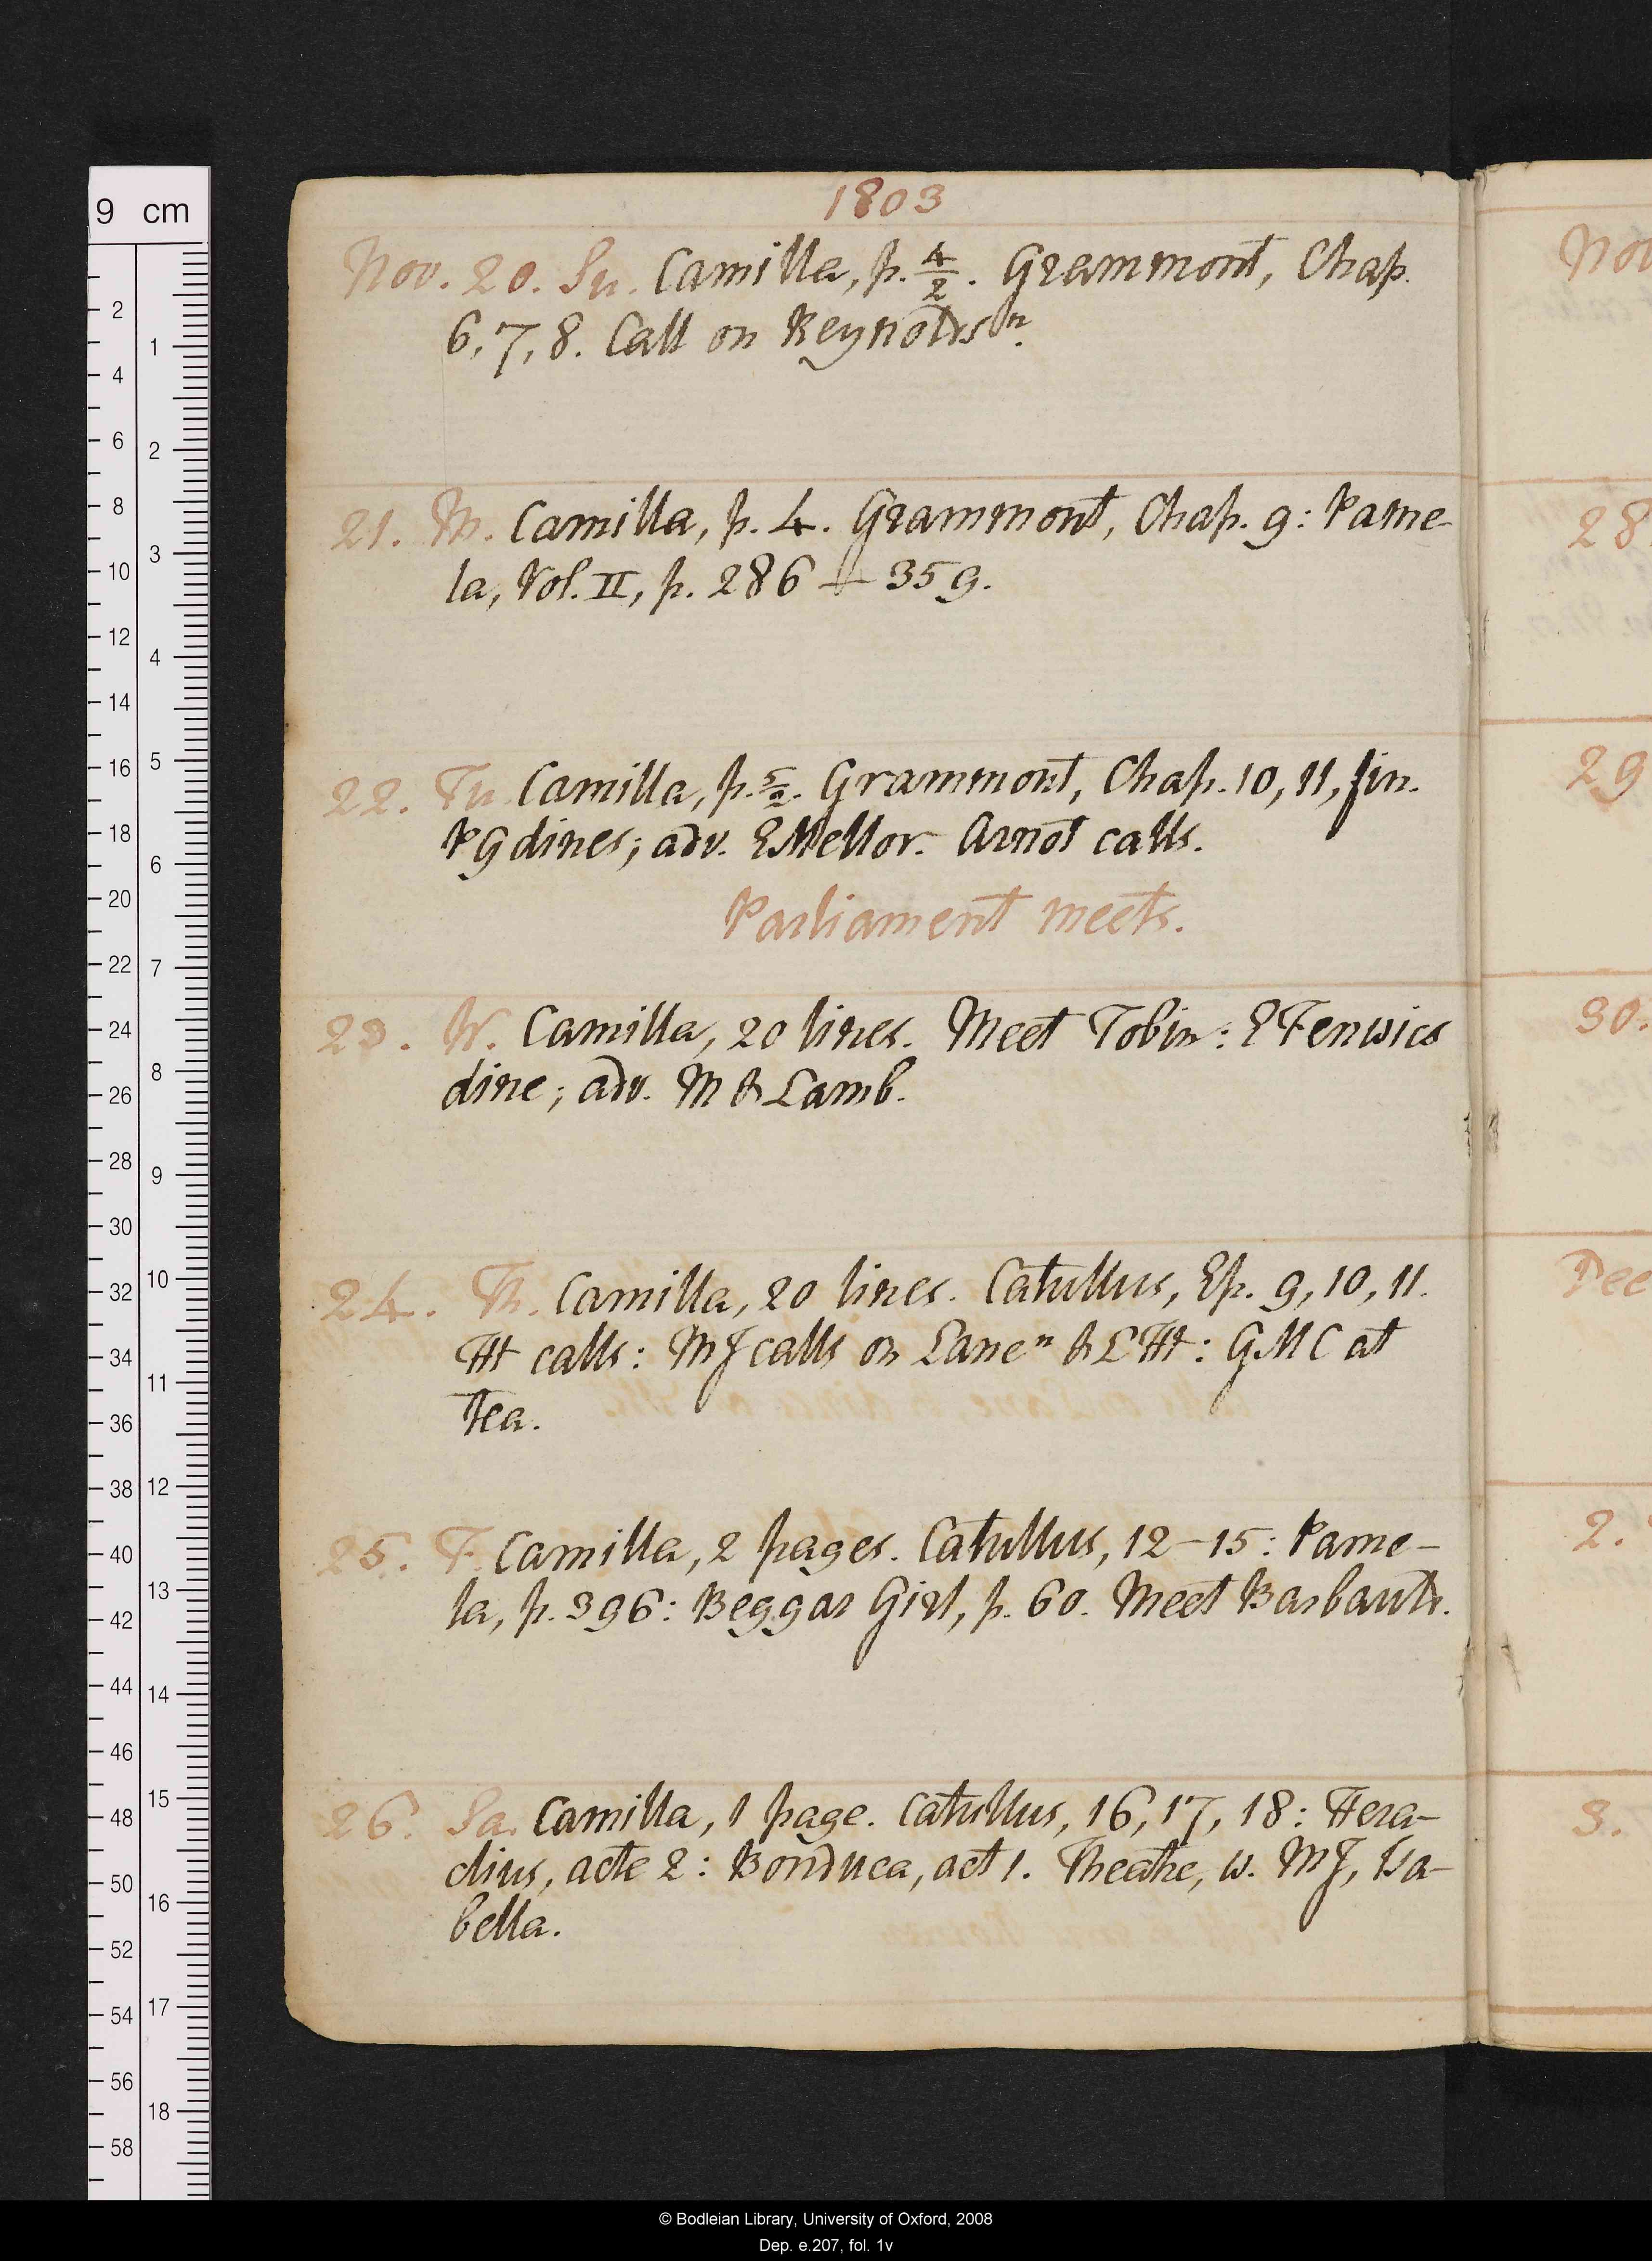 1803
Nov. 20. Su. Camilla, p. 4/2. Grammont, Chap.
6, 7, 8. Call on Reynolds n.
21. M. Camilla, p. 4. Grammont, Chap. 9: Pame-
la, Vol. II, p. 286 + 359.
22. Tu. Camilla, p. 5/2. Grammont, Chap. 10, 11, fin.
PG dines; adv. E Mellor. Arnot calls.
Parliament meets.
23. W. Camilla, 20 lines. Meet Tobin: E Fenwics
dine; adv. M & Lamb.
24. Th. Camilla, 20 lines. Catullus, Ep. 9, 10, 11.
Ht calls: MJ calls on Lane n & L Ht: GMC at
tea.
25. F. Camilla, 2 pages. Catullus, 12–15: Pame-
la, p. 396: Beggar Girl, p. 60. Meet Barbauds.
26. Sa. Camilla, 1 page. Catullus, 16, 17, 18: Hera-
clius, acte 2: Bonduca, act 1. Theatre, w. MJ, Isa-
bella.
Nov
28
29
30.
Dec
2.
3.
9 cm
2 4 6 8 10 12 14 16 18 20 22 24 26 28 30 32 34 36 38 40 42 44 46 48 50 52 54 56 58
1 2 3 4 5 6 7 8 9 10 11 12 13 14 15 16 17 18
© Bodleian Library, University of Oxford, 2008
Dep. e.207, fol. 1v